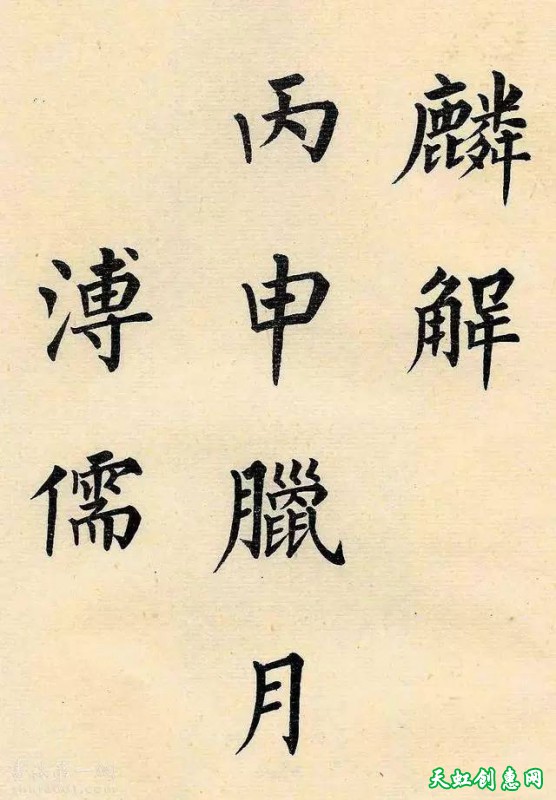 麟解
丙申臘月
溥儒
天虹创惠网